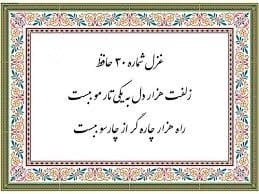 غزل شماره ۳۰ حافظ
زلفت هزار دل به یکی تار مو ببست
راه هزار چاره گر از چار سو ببست